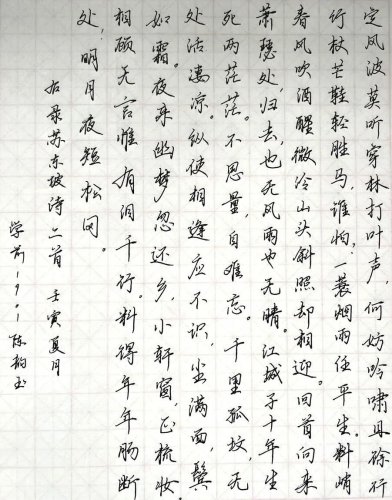 定风波莫听穿林打叶声,何妨吟啸且徐行
竹杖芒鞋轻胜马,谁怕,一蓑烟雨任平生。料峭
春风吹酒醒微冷山头斜照却相迎。回首向来
萧瑟处,归去,也无风雨也无晴。江城子十年生
死两茫茫。不思量,自难忘。千里孤坟,无
处话凄凉。纵使相逢应不识,尘满面,鬓
如霜。夜来幽梦忽还乡,小轩窗,正梳妆
相顾无言惟有泪千行。料得年年肠断
处,明月夜短松冈。
右录苏东坡诗二首 壬寅夏月
学前 陈韵玉